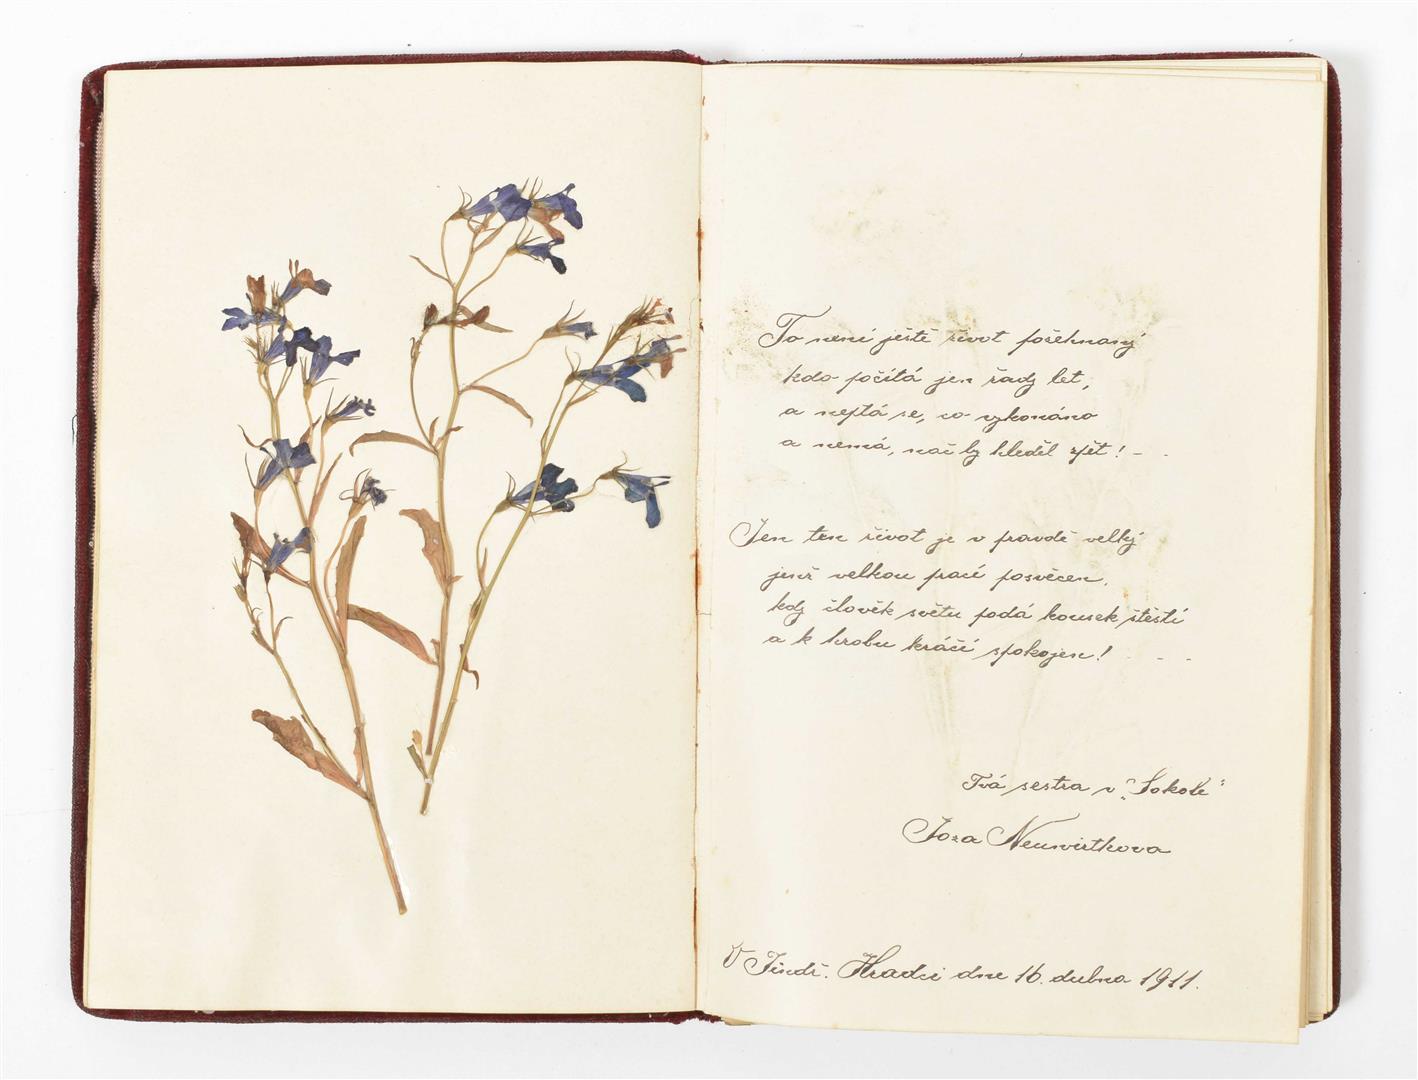 To není ještě život požehnaný
kdo počítá jen řady let,
a neptá se, co vykonáno
a nemá, nač by hleděl zpět! - -
Jen ten život je v pravdě velký
jenž velkou prací posvěcen,
kdy člověk světu podá kousek štěstí
a k hrobu kráčí spokojen! - - -
Tvá sestra v „Sokole"
Joza Neuwirtkova
V Jindř. Hradci dne 16. dubna 1911.